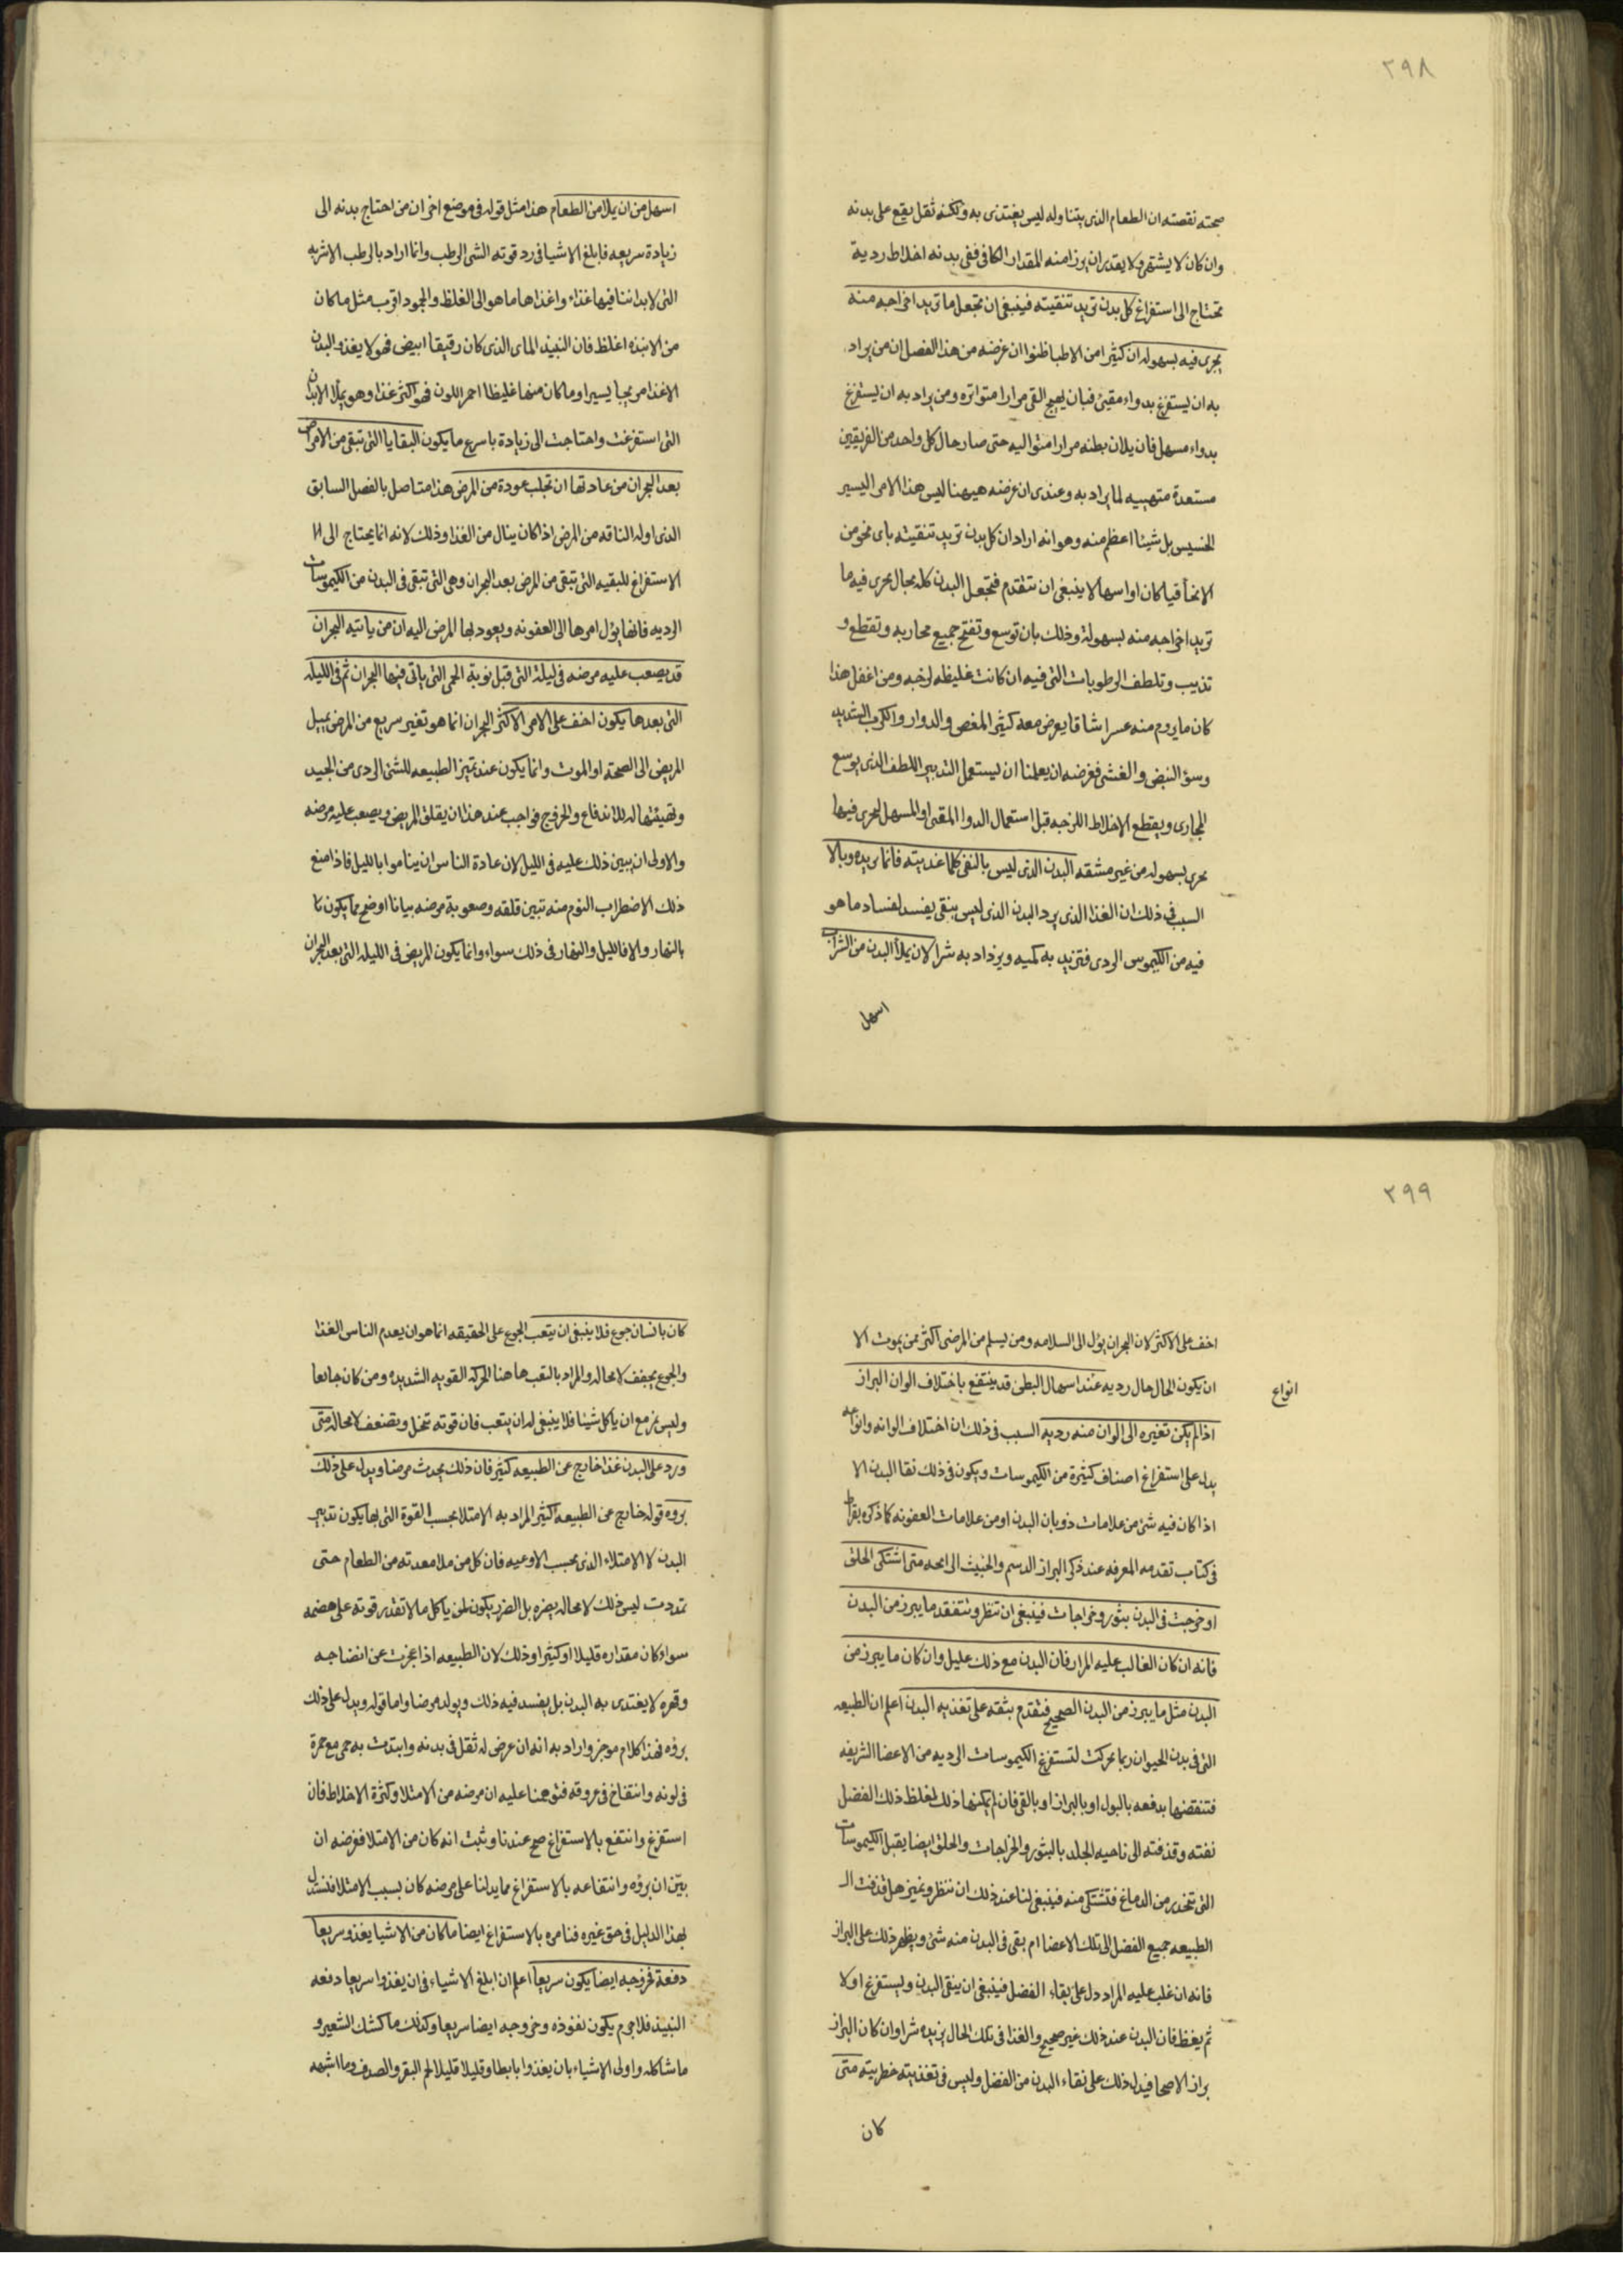 ٢٩٨
صحته نقصته ان الطعام الذى يتناوله ليس يغتذى به ولكنه ثقل يقع على بدنه
وان كان لا يشتهى ولا يقدر ان يرزا منه المقدار الكافى ففى بدنه اخلاط ردية
تحتاج الى استفراغ كل بدن تريد تنقيته فينبغى ان تجعل ما تريد اخراجه منه
يجرى فيه بسهوله ان كثيرا من الاطبا ظنوا ان غرضه من هذا الفصل ان من يراد
به ان يستفرغ بدواء مقيئ فبان يهيج القى مرارا متواتره ومن يراد به ان يستفرغ
بدواء مسهل فان يلان بطنه مرارا متواليه حتى صار حال كل واحد من الفريقين
مستعدة متهييه لما يراد به وعندى ان غرضه هيهنا ليس هذا الامر اليسير
الخسيس بل شيئا اعظم منه وهو انه اراد ان كل بدن تريد تنقيته باى نحو من
الانحأ قيا كان او اسهالا ينبغى ان تتقدم فتجعل البدن كله بحال يجرى فيه ما
تريد اخراجه منه بسهولة وذلك بان توسع وتفتح جميع مجاريه وتقطع و
تذيب وتلطف الرطوبات التى فيه ان كانت غليظه لزجه ومن اغفل هذا
كان ما يروم منه عسرا شاقا يعرض معه كثيرا المغص والدوار والكرب الشديد
وسؤ النبض والغشى فغرضه ان يعلمنا ان يستعمل التدبير اللطف الذى يوسع
المجارى ويقطع الاخلاط اللزجه قبل استعمال الدوا المقى او المسهل ليجرى فيها
يجرى بسهوله من غير مشقه البدن الذى ليس بالنقى كلما غذيته فانما يزيده وبالا
السبب فى ذلك ان الغذا الذى يرد البدن الذى ليس بنقى يفسد لفساد ما هو
فيه من الكيموس الردى فتزيد به كميه ويزداد به شرا لان يملأ البدن من الشراب
اسهل
اسهل من ان يملا من الطعام هذا مثل قوله فى موضع اخر ان من احتاج بدنه الى
زيادة سريعه فابلغ الاشيا فى رد قوته الشى الرطب وانما اراد بالرطب الاشربه
التى لابداننا فيها غذاء واغذاها ما هو الى الغلظ والجود اقرب مثل ما كان
من الانبذه اغلظ فان النبيذ الماى الذى كان رقيقا ابيض فهو لا يغذو البدن
الا غذا مريحا يسيرا وما كان منها غليظا احمر اللون فهو اكثر غذا وهو يملأ الابدان
التى استفرغت واحتاجت الى زيادة باسرع ما يكون البقايا التى تبقى من الامراض
بعد البحران من عادتها ان تجلب عودة من المرض هذا متاصل بالفصل السابق
الذى اوله الناقه من المرض اذا كان ينال من الغذا وذلك لانه انما يحتاج الى
الاستفراغ للبقيه التى تبقى من المرض بعد البحران وهى التى تبقى فى البدن من الكيموسات
الرديه فانها يؤل امرها الى العفونه ويعود بها المرض اليه ان من ياتيه البحران
قد يصعب عليه مرضه فى ليلة التى قبل نوبة الحمى التى ياتى فيها البحران ثم فى الليله
التى بعدها يكون اخف على الامر الاكثر البحران انما هو تغير سريع من المرض يميل
المريض الى الصحة او الموت وانما يكون عند تميز الطبيعه للشئ الردى من الجيد
وتهيئتها له للاندفاع والخروج فواجب عند هذا ان يقلق المريض ويصعب عليه مرضه
والاولى ان يبين ذلك عليه فى الليل لان عادة الناس ان يناموا بالليل فاذا منع
ذلك الاضطراب النوم منه تبين قلقه وصعوبة مرضه بيانا اوضح مما يكون
بالنهار والا فالليل والنهار فى ذلك سواء وانما يكون المريض فى الليله التى بعد البحران
٢٩٩
اخف على الاكثر لان البحران يؤل الى السلامه ومن يسلم من المرضى اكثر ممن يموت الا
ان يكون الحال حال رديه عند اسهال البطن قد ينتفع باختلاف الوان البراز
انواع
اذا لم يكن تغيره الى الوان منه رديه السبب فى ذلك ان اختلاف الوانه وانواعه
يدل على استفراغ اصناف كثيرة من الكيموسات ويكون فى ذلك نقا البدن الا
اذا كان فيه شئ من علامات ذوبان البدن او من علامات العفونه كما ذكره بقراط
فى كتاب تقدمه المعرفه عند ذكر البراز الدسم والخبيث الرائحه متى اشتكى الحلق
او خرجت فى البدن بثور وخراجات فينبغى ان تنظر وتتفقد ما يبرز من البدن
فانه ان كان الغالب عليه المرار فان البدن مع ذلك عليل وان كان ما يبرز من
البدن مثل ما يبرز من البدن الصحيح فتقدم بثقه على تغذيه البدن اعلم ان الطبيعه
التى فى بدن الحيوان ربما تحركت لتستفرغ الكيموسات الرديه من الاعضا الشريفه
فتنقضها بدفعه بالبول او بالبراز او بالقى فان لم يمكنها ذلك لغلظ ذلك الفضل
نفته وقذفته الى ناحيه الجلد بالبثور والخراجات والحلق ايضا يقبل الكيموسات
التى تنحدر من الدماغ فتشتكى منه فينبغى لنا عند ذلك ان ننظر ونميز هل قذفت ال
الطبيعه جميع الفضل الى تلك الاعضا ام بقى فى البدن منه شئ ويظهر ذلك على البراز
فانه ان غلب عليه المرار دل على بقاء الفضل فينبغى ان ينقى البدن ويستفرغ اولا
ثم يغظ فان البدن عند ذلك غير صحيح والغذا فى تلك الحال يزيده شرا وان كان البراز
براز الاصحا فيدل ذلك على نقاء البدن من الفضل وليس فى تغذيته خطر بيته متى
كان
كان بانسان جوع فلا ينبغى ان يتعب الجوع على الحقيقه انما هو ان يعدم الناس الغذا
والجوع يجفف لا محاله والمراد بالتعب هاهنا الحركه القويه الشديده ومن كان جايعا
وليس يزمع ان ياكل شيئا فلا ينبغى له ان يتعب فان قوته تنحل ويضعف لا محاله متى
ورد على البدن غذا خارج عن الطبيعه كثير فان ذلك يحدث مرضا ويدل على ذلك
بروه قوله خارج عن الطبيعه كثير المراد به الامتلا بحسب القوة التى بها يكون تدبير
البدن لا الامتلاء الذى بحسب الاوعيه فان كل من ملا معدته من الطعام حتى
تمددت ليس ذلك لا محاله يضره بل الضرر يكون لمن ياكل ما لا تقدر قوته على هضمه
سواء كان مقداره قليلا او كثيرا وذلك لان الطبيعه اذا عجزت عن انضاجه
وقهره لا يغتدى به البدن بل يفسد فيه ذلك ويولد مرضا واما قوله ويدل على ذلك
بروه فهذا كلام موجز واراد به انه ان عرض له ثقل فى بدنه وابتدت به حمى مع حمرة
فى لونه وانتفاخ فى عروقه فتوهمنا عليه ان مرضه من الامتلا وكثرة الاخلاط فان
استفرغ وانتفع بالاستفراغ صح عندنا وثبت انه كان من الامتلا فغرضه ان
بيّن ان بروه وانتفاعه بالاستفراغ مما يدلنا على مرضه كان بسبب الامتلا فنستدل
بهذا الدليل فى حق غيره فنامره بالاستفراغ ايضا ما كان من الاشيا يغذو سريعا
دفعة فخروجه ايضا يكون سريعا اعلم ان ابلغ الاشياء فى ان يغذوا سريعا دفعه
النبيذ فلا جرم يكون نفوذه وخروجه ايضا سريعا وكذلك ما كشك الشعير و
ما شاكله واولى الاشياء بان يغذوا بابطا وقليلا قليلا لحم البقر والصدف وما اشبهه